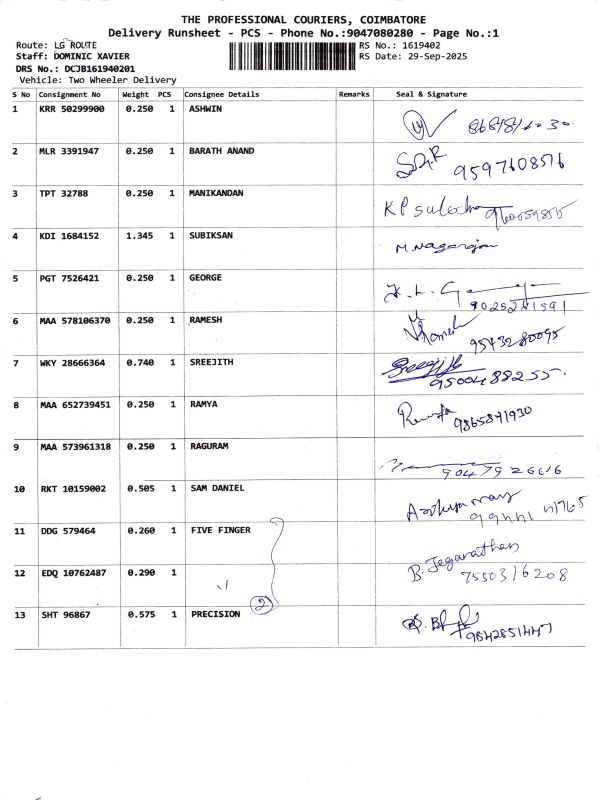 THE PROFESSIONAL COURIERS, COIMBATORE
Delivery Runsheet - PCS - Phone No.:9047080280 - Page No.:1
Route: LG ROUTE RS No.: 1619402
Staff: DOMINIC XAVIER RS Date: 29-Sep-2025
DRS No.: DCJB161940201
Vehicle: Two Wheeler Delivery
S No Consignment No Weight PCS Consignee Details Remarks Seal & Signature
1 KRR 50299900 0.250 1 ASHWIN
2 MLR 3391947 0.250 1 BARATH ANAND
9597608576
3 TPT 32788 0.250 1 MANIKANDAN
KP Sulocha
4 KDI 1684152 1.345 1 SUBIKSAN
M. Nagarajan
5 PGT 7526421 0.250 1 GEORGE
9025241591
6 MAA 578106370 0.250 1 RAMESH
Ramesh
9543280095
7 WKY 28666364 0.740 1 SREEJITH
Sreejith
9500488255.
8 MAA 652739451 0.250 1 RAMYA
9865871930
9 MAA 573961318 0.250 1 RAGURAM
10 RKT 10159002 0.505 1 SAM DANIEL
11 DDG 579464 0.260 1 FIVE FINGER
B. Jeganathan
12 EDQ 10762487 0.290 1
7550316208
2
13 SHT 96867 0.575 1 PRECISION
9842851447